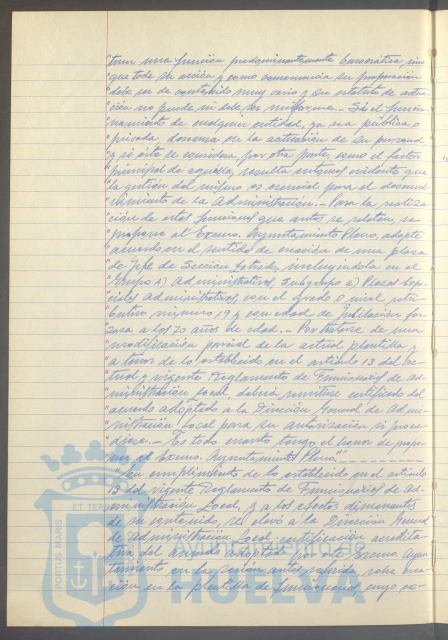 "tener una función predominantemente burocrática, sino
"que toda su acción y como consecuencia su preparación
"debe ser de contenido muy vario y su estatuto de actua-
"ción no puede ni debe ser uniforme.- Si el funcio-
"namiento de cualquier entidad, ya sea pública o
"privada, descansa de la actuación de su personal,
"y si éste se considera por otra parte, como el factor
"principal de aquella, resulta entonces evidente que
"la gestión del mismo es esencial para el desenvol-
"vimiento de la Administración.- Para la realiza-
"ción de estas funciones que antes se relatan, se
"propone al Excmo. Ayuntamiento Pleno, adopte
"acuerdo en el sentido de creación de una plaza
"de Jefe de Sección Letrado, incluyéndola en el
"Grupo A) Administrativos, Subgrupo a) Plazas Espe-
"ciales Administrativos, con el grado o nivel retri-
"butivo número 19 y con edad de jubilación for-
"zosa a los 70 años de edad.- Por tratarse de una
"modificación parcial de la actual plantilla y
"a tenor de lo establecido en el artículo 13 del ac-
"tual y vigente Reglamento de Funcionarios de Ad-
"ministración Local, deberá remitirse certificado del
"acuerdo adoptado a la Dirección General de Admi-
"nistración Local para su autorización si proce-
"diese.- Es todo cuanto tengo el honor de propo-
"ner al Excmo. Ayuntamiento Pleno".
"En cumplimiento de lo establecido en el artículo
"13 del vigente Reglamento de Funcionarios de Ad-
"ministración Local, y a los efectos dimanantes
"de su contenido, se elevó a la Dirección General
"de Administración Local, certificación acredita-
"tiva del acuerdo adoptado por el Excmo. Ayun-
"tamiento en la sesión antes referida, sobre crea-
"ción en la plantilla de funcionarios, cuyo co-
PORTUS MARIS
ET TERR
HUELVA